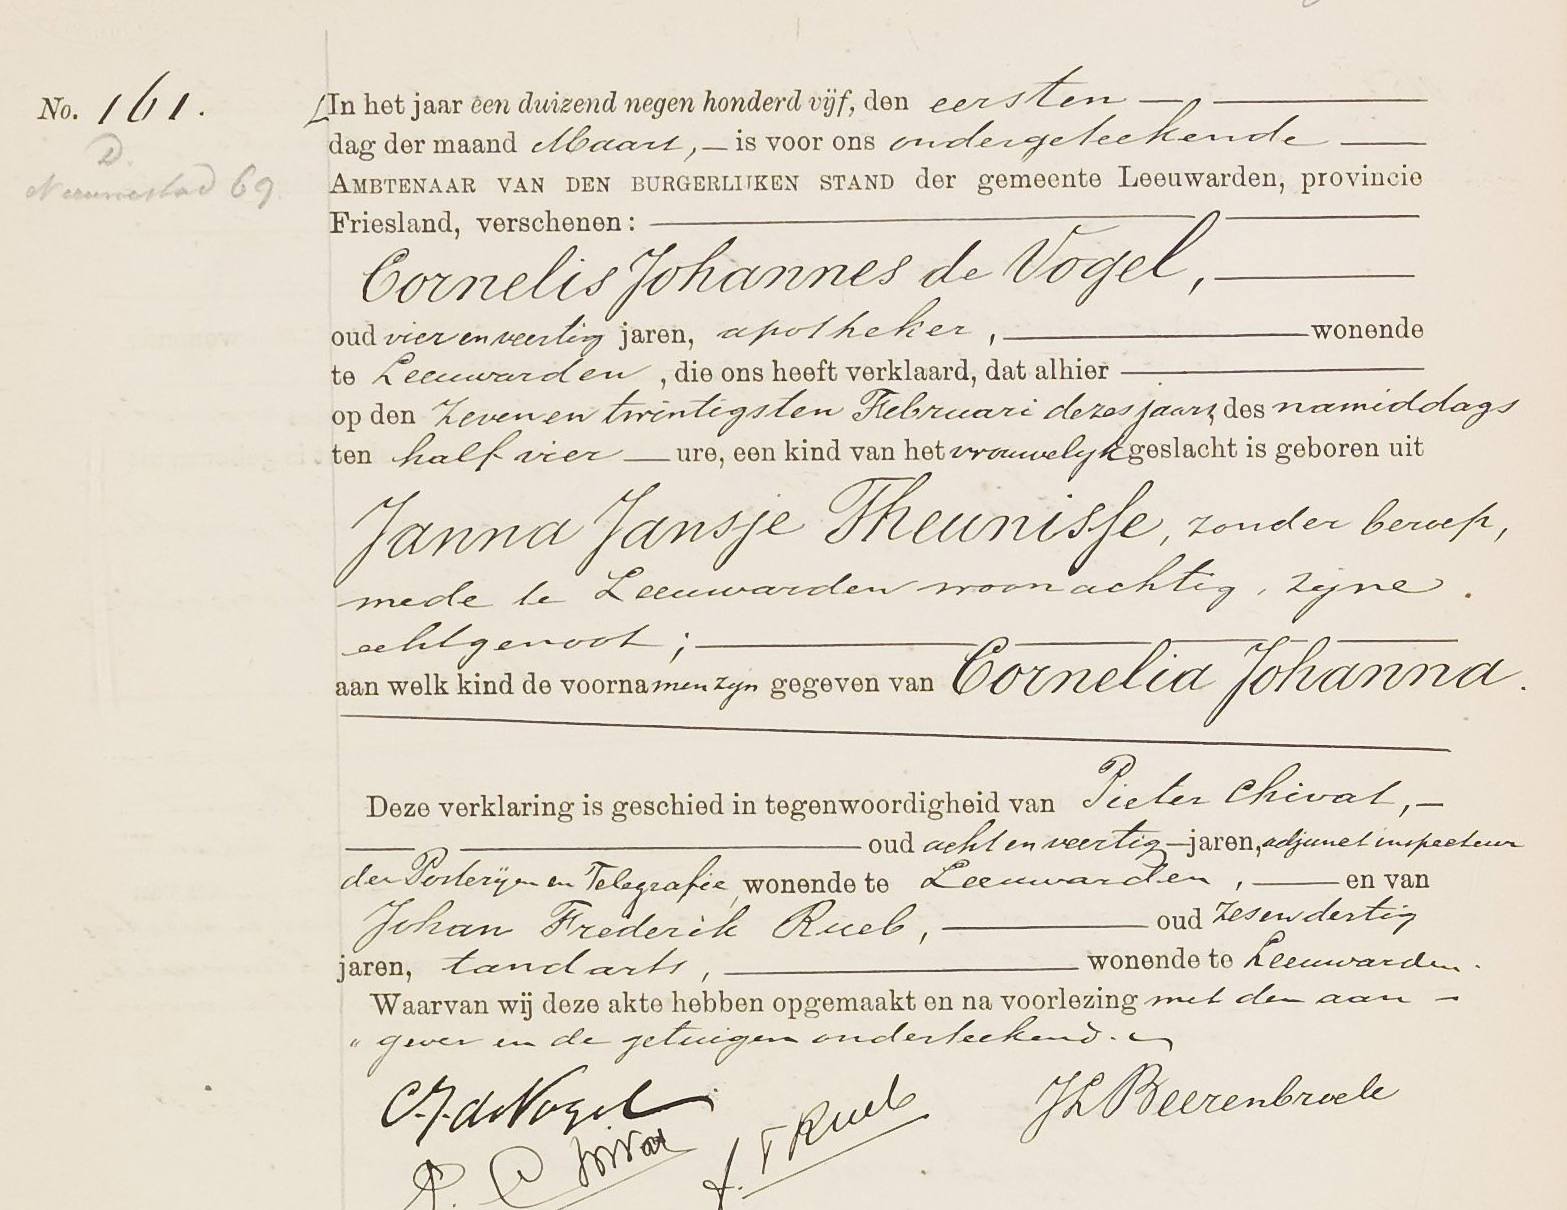 No. 161.
D.
Nieuwestad 69
In het jaar een duizend negen honderd vijf, den eersten
dag der maand Maart, is voor ons ondergeteekende
AMBTENAAR VAN DEN BURGERLIJKEN STAND der gemeente Leeuwarden, provincie
Friesland, verschenen:
Cornelis Johannes de Vogel,
oud vier en veertig jaren, apotheker, wonende
te Leeuwarden, die ons heeft verklaard, dat alhier
op den zeven en twintigsten Februari dezes jaars, des namiddags
ten half vier ure, een kind van het vrouwelijk geslacht is geboren uit
Janna Jansje Theunisse, zonder beroep,
mede te Leeuwarden woonachtig, zijne
echtgenoot;
aan welk kind de voornamen zijn gegeven van Cornelia Johanna.
Deze verklaring is geschied in tegenwoordigheid van Pieter Chivat,
oud acht en veertig jaren, adjunct inspecteur
der Posterijen en Telegrafie, wonende te Leeuwarden, en van
Johan Frederik Rueb, oud zes en dertig
jaren, tandarts, wonende te Leeuwarden.
Waarvan wij deze akte hebben opgemaakt en na voorlezing met den aan-
"gever en de getuigen onderteekend.
C.J. de Vogel
J L Beerenbroek
P. Chivat
J. F Rueb